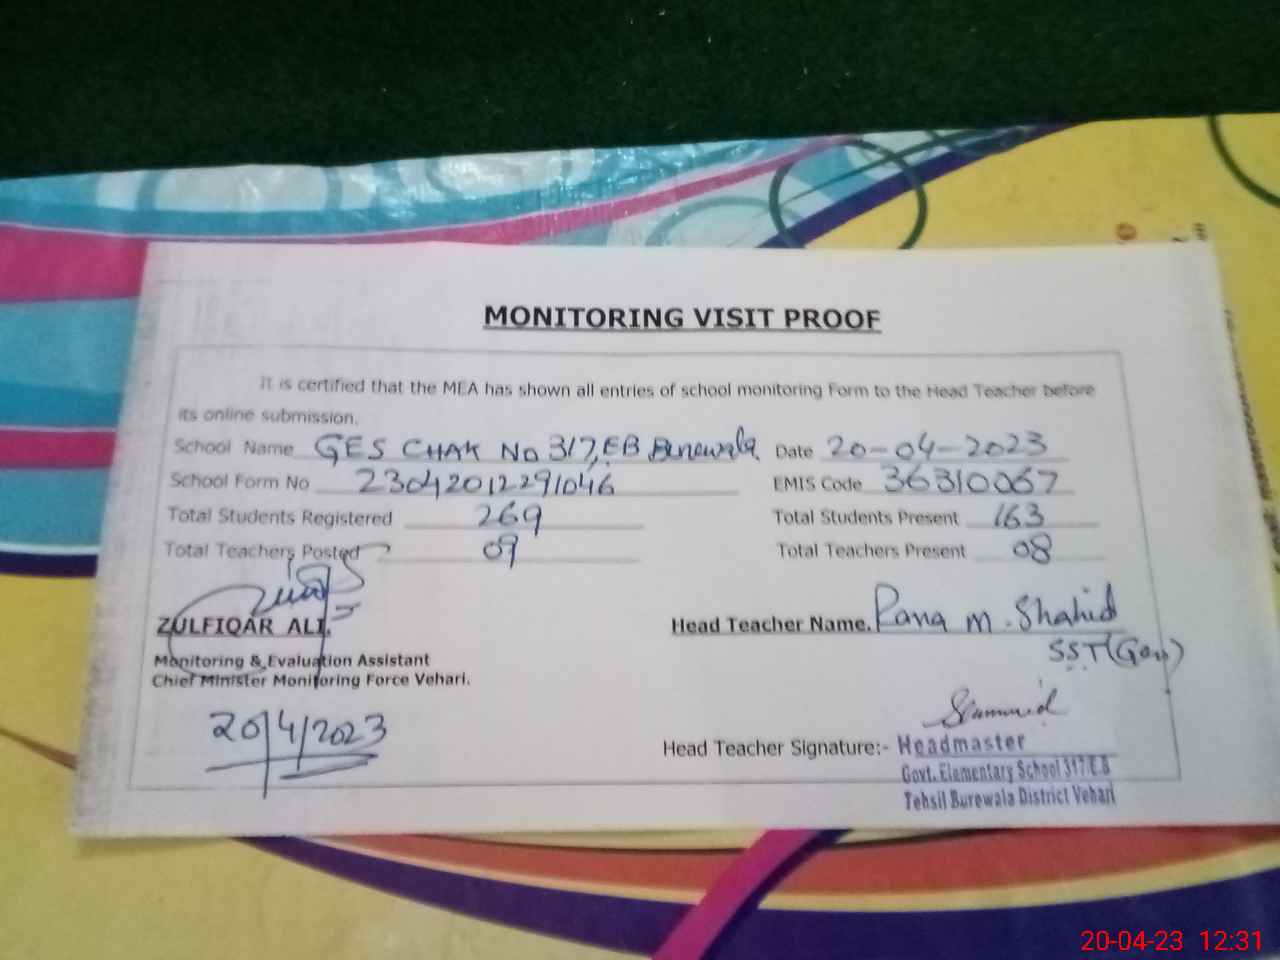 MONITORING VISIT PROOF
It is certified that the MEA has shown all entries of school monitoring Form to the Head Teacher before
its online submission.
School Name GES CHAK No 317,EB Burewala Date 20-04-2023
School Form No 23042012291046 EMIS Code 36310067
Total Students Registered 269 Total Students Present 163
Total Teachers Posted 09 Total Teachers Present 08
ZULFIQAR ALI. Head Teacher Name. Rana M. Shahid
SST(Gen)
Monitoring & Evaluation Assistant
Chief Minister Monitoring Force Vehari.
20/4/2023
Head Teacher Signature:- Headmaster
Govt. Elementary School 317/E.B
Tehsil Burewala District Vehari
20-04-23 12:31